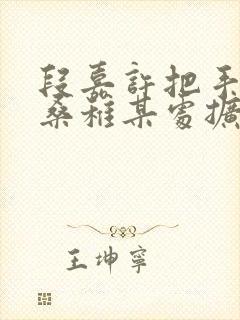 段嘉許把手
桑稚某處擴
王坤寧